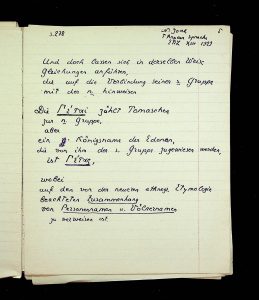 s. 278
N. Jokl
Thraker Sprache
ERL XIII 1929
5
Und doch lassen sich in derselben Weise
Gleichungen anführen,
die auf die Verbindung seiner s Gruppe
mit der n. hinweisen
Die Γέται zählt Tomaschek
zur n. Gruppe,
aber
ein Königsname der Edonen,
die von ihm der s. Gruppe zugewiesen werden,
ist Γέτας,
wobei
auf den von der neueren ethnog. Etymologie
beachteten Zusammenhang
von Personennamen u. Völkernamen
zu verweisen ist